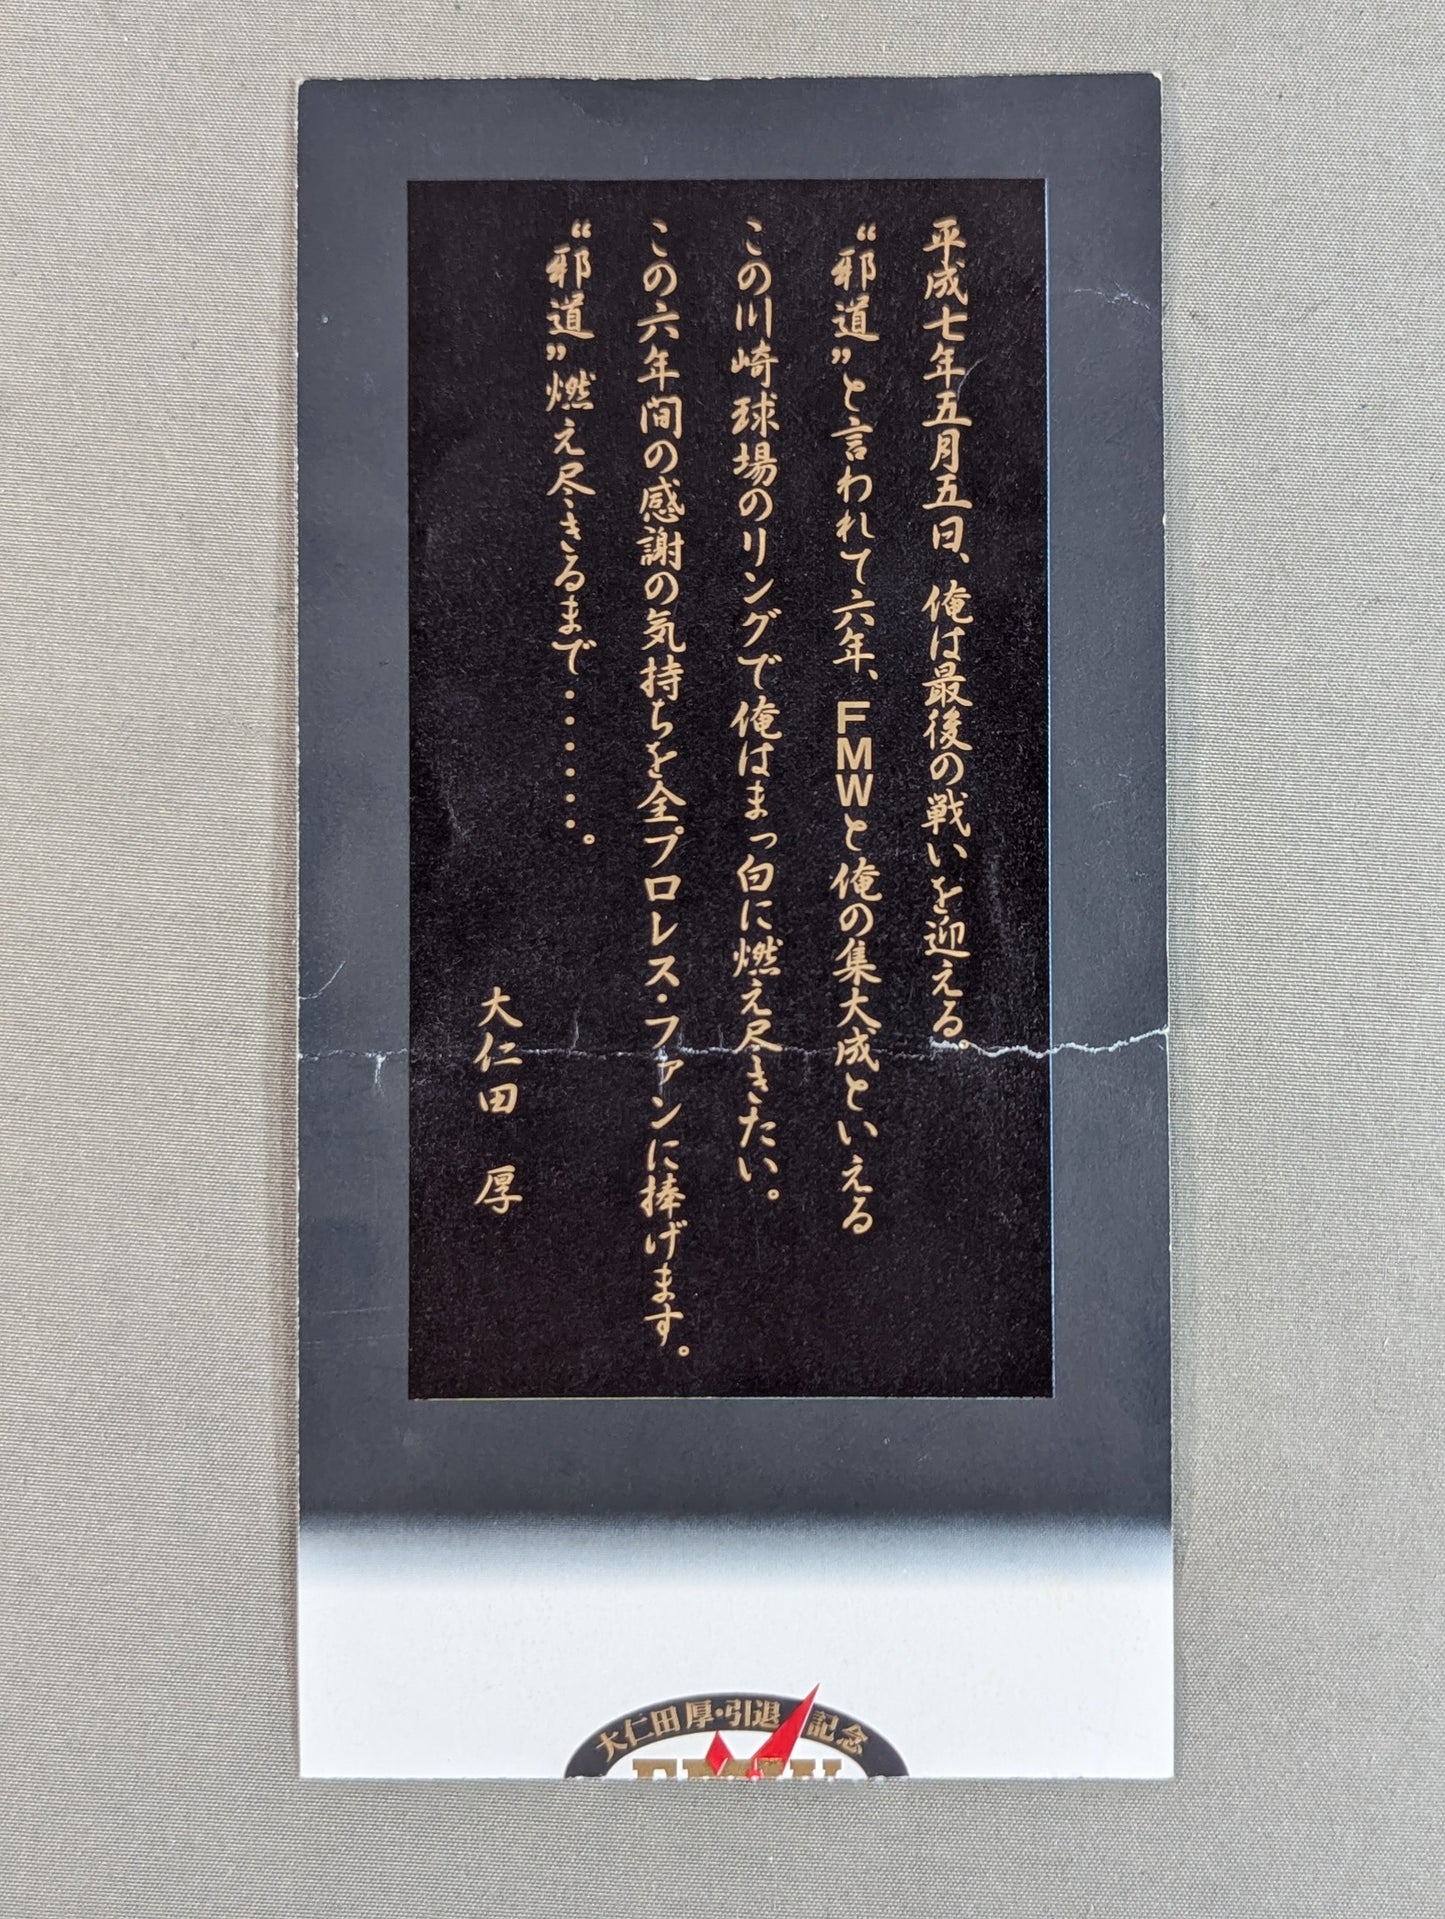 平成七年五月五日、俺は最後の戦いを迎える。
“邪道”と言われて六年、FMWと俺の集大成といえる
この川崎球場のリングで俺はまっ白に燃え尽きたい。
この六年間の感謝の気持ちを全プロレス・ファンに捧げます。
“邪道”燃え尽きるまで・・・・・・・。
大仁田 厚
大仁田厚・引退記念